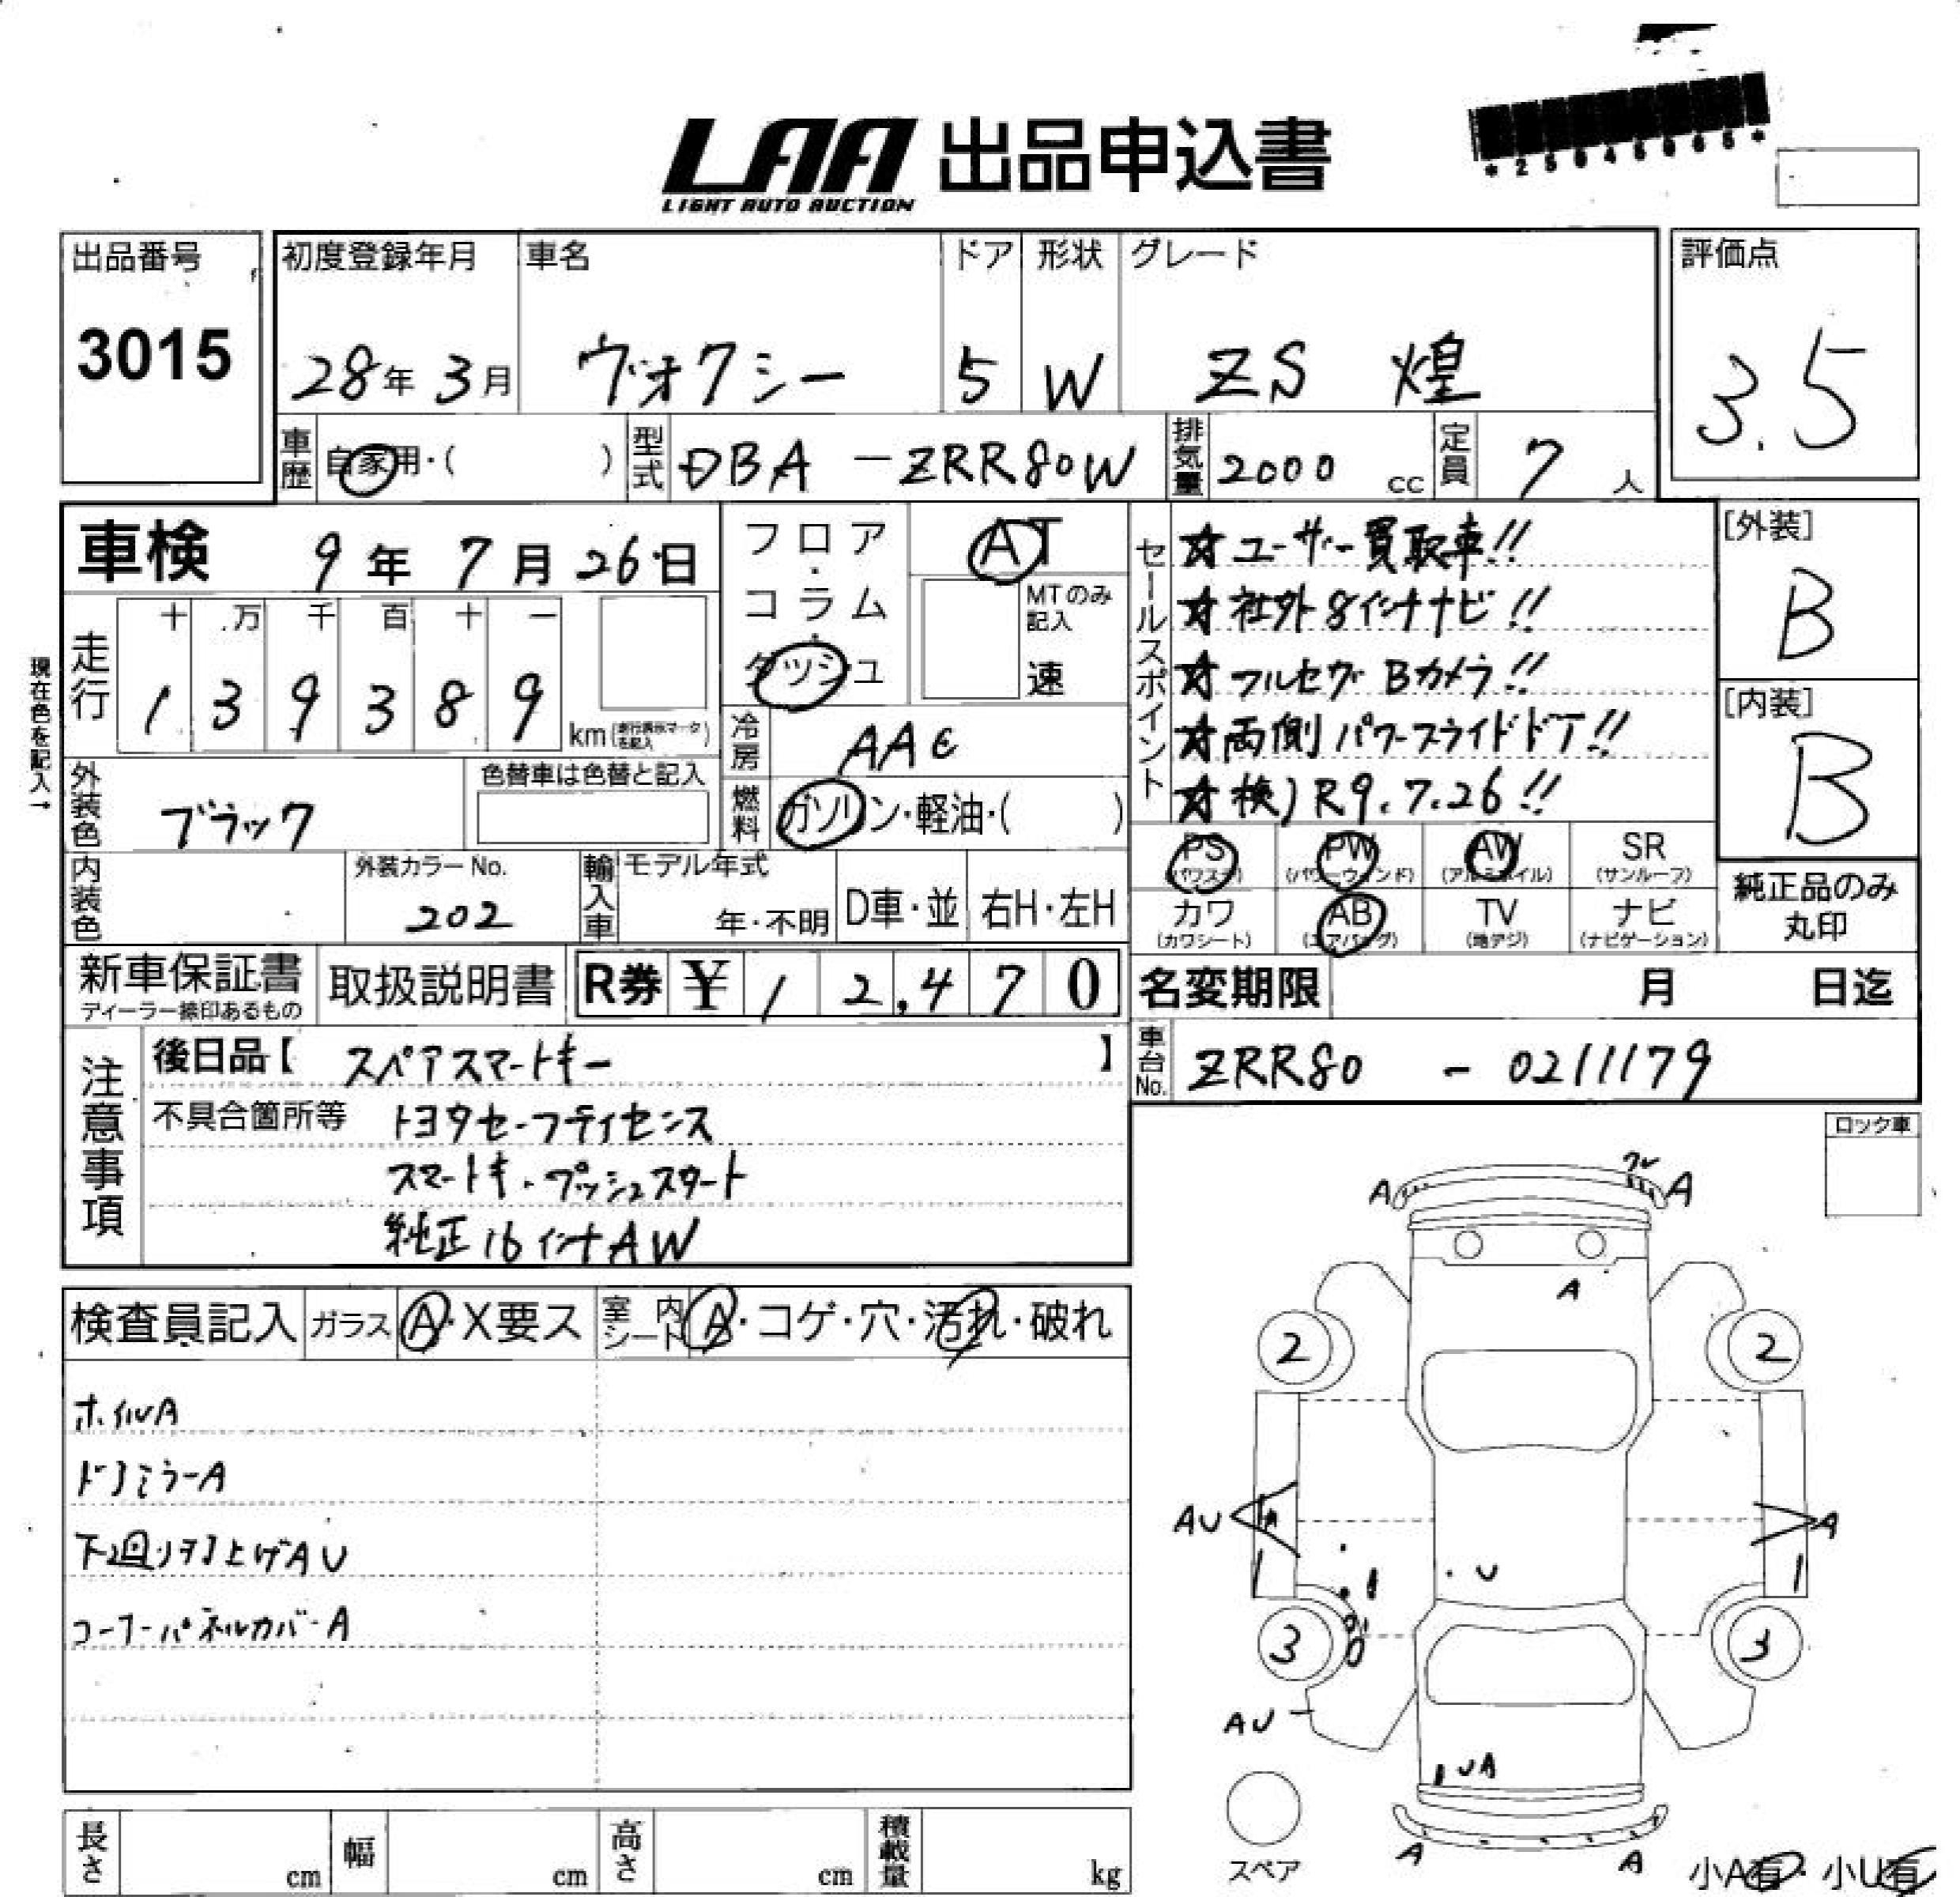 LAA 出品申込書
LIGHT AUTO AUCTION
*25045065*
出品番号
3015
初度登録年月
28年 3月
車名
ヴォクシー
ドア
5
形状
W
グレード
ZS 煌
評価点
3.5
車歴
自家用・( )
型式
DBA-ZRR80W
排気量
2000 cc
定員
7 人
車検 9年 7月 26日
現在色を記入→
走行
十 万 千 百 十 一
1 3 9 3 8 9
km
フロア・コラム・ダッシュ
AT
MTのみ記入
速
冷房
AAC
燃料
ガソリン・軽油・( )
セールスポイント
☆ユーザー買取車!!
☆社外8インチナビ!!
☆フルセグ Bカメラ!!
☆両側パワースライドドア!!
☆検)R9.7.26!!
[外装]
B
[内装]
B
外装色
ブラック
色替車は色替と記入
内装色
外装カラーNo.
202
輸入車
モデル年式
年・不明
D車・並
右H・左H
PS (パワステ)
PW (パワーウィンド)
AW (アルミホイル)
SR (サンルーフ)
カワ (カワシート)
AB (エアバッグ)
TV (地デジ)
ナビ (ナビゲーション)
純正品のみ丸印
新車保証書
ディーラー捺印あるもの
取扱説明書
R券 ¥12,470
名変期限 月 日迄
注意事項
後日品【 スペアスマートキー 】
不具合箇所等 トヨタセーフティセンス
スマートキー・プッシュスタート
純正16インチAW
車台No.
ZRR80 - 0211179
ロック車
検査員記入
ガラス A・X要ス
室内シート A・コゲ・穴・汚れ・破れ
ホイルA
ドアミラーA
下廻リヲ)上ゲAU
コーナーパネルカバーA
A
A
A
2
2
AU
A
A
U
3
3
AU
UA
A
A
スペア
小A有・小U有
長さ cm
幅 cm
高さ cm
積載量 kg